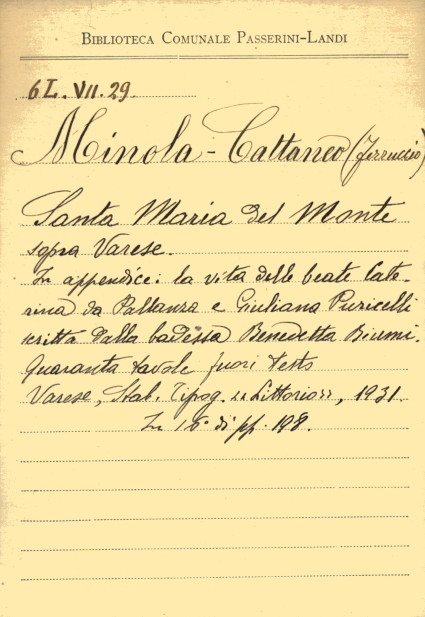 BIBLIOTECA COMUNALE PASSERINI-LANDI
6L.VII.29
Minola-Cattaneo (Ferruccio)
Santa Maria del Monte
sopra Varese.
In appendice: la vita delle beate Cate-
rina da Pallanza e Giuliana Puricelli
scritta dalla badessa Benedetta Biumi.
Quaranta tavole fuori testo
Varese, Stab. Tipog. "Littorio", 1931.
In 16° di pp. 198.